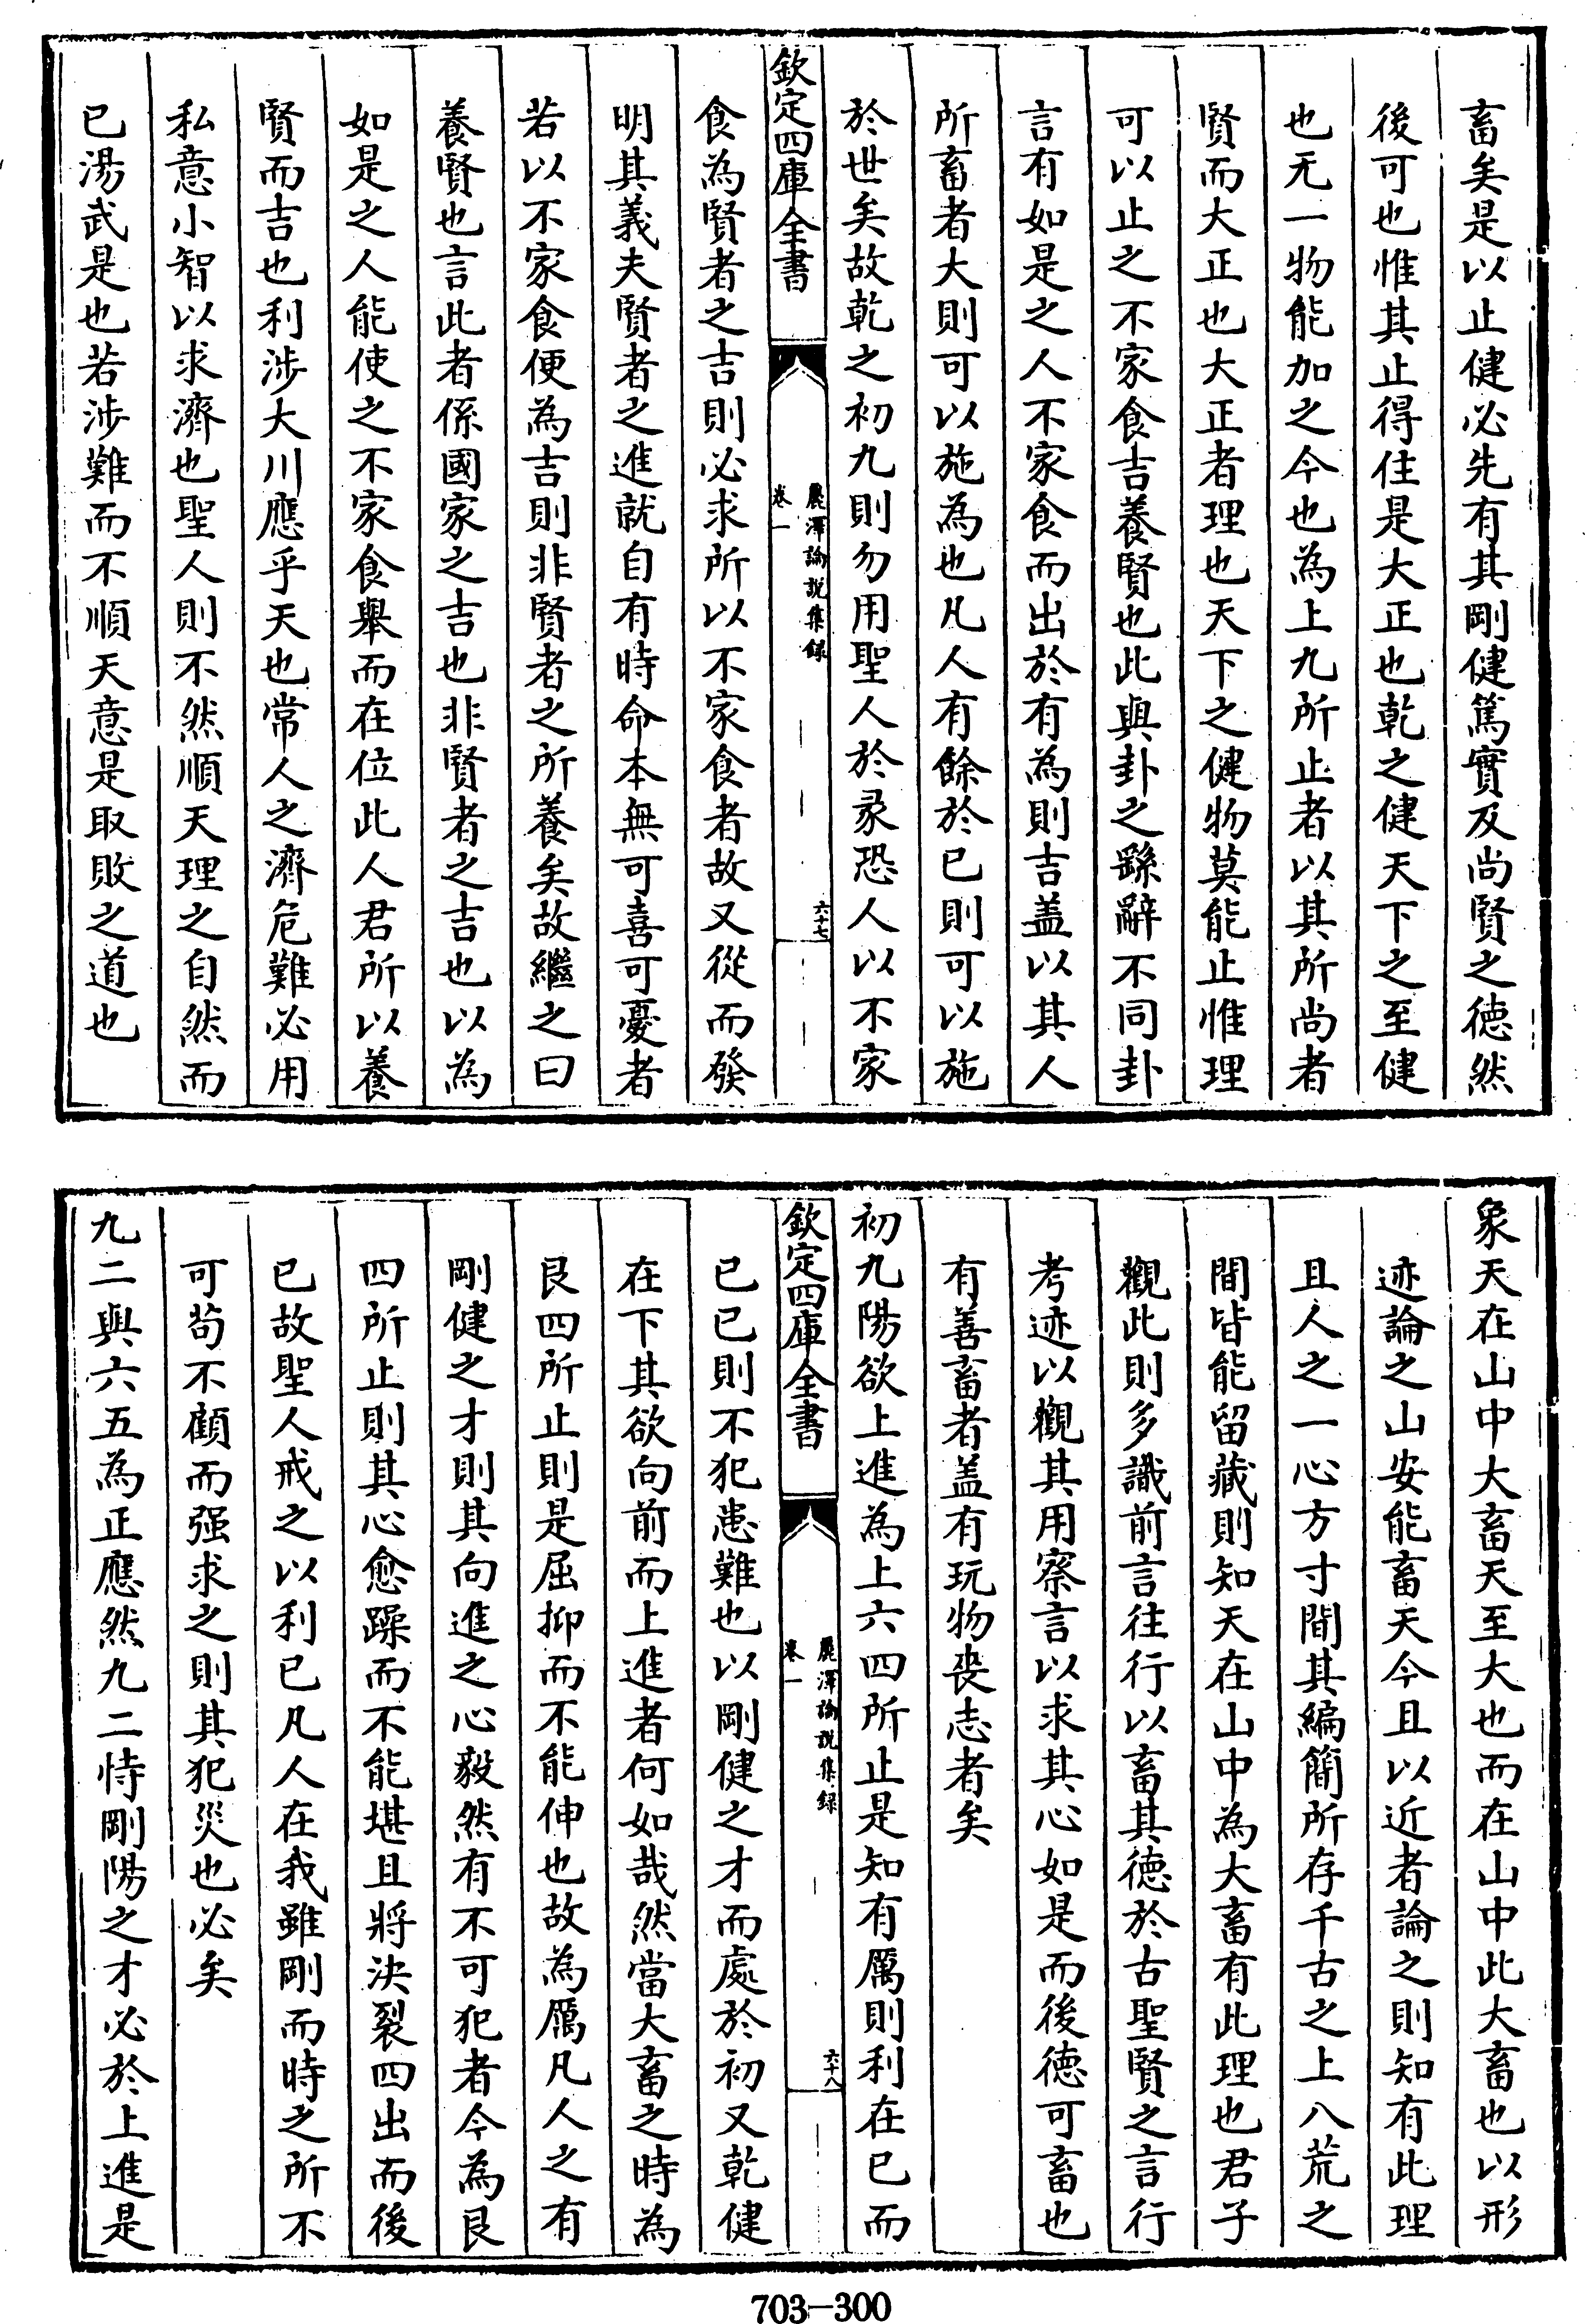 畜矣是以止健必先有其剛健篤實及尚賢之德然
後可也惟其止得住是大正也乾之健天下之至健
也无一物能加之今也為上九所止者以其所尚者
賢而大正也大正者理也天下之健物莫能止惟理
可以止之不家食吉養賢也此與卦之繇辭不同卦
言有如是之人不家食而出於有為則吉盖以其人
所畜者大則可以施為也凡人有餘於已則可以施
於世矣故乾之初九則勿用聖人於彖恐人以不家
欽定四庫全書
麗澤論說集録
卷一
六十七
食為賢者之吉則必求所以不家食者故又從而發
明其義夫賢者之進就自有時命本無可喜可憂者
若以不家食便為吉則非賢者之所養矣故繼之曰
養賢也言此者係國家之吉也非賢者之吉也以為
如是之人能使之不家食舉而在位此人君所以養
賢而吉也利涉大川應乎天也常人之濟危難必用
私意小智以求濟也聖人則不然順天理之自然而
已湯武是也若涉難而不順天意是取敗之道也
象天在山中大畜天至大也而在山中此大畜也以形
迹論之山安能畜天今且以近者論之則知有此理
且人之一心方寸間其編簡所存千古之上八荒之
間皆能留藏則知天在山中為大畜有此理也君子
觀此則多識前言往行以畜其德於古聖賢之言行
考迹以觀其用察言以求其心如是而後德可畜也
有善畜者盖有玩物喪志者矣
初九陽欲上進為上六四所止是知有厲則利在已而
欽定四庫全書
麗澤論說集録
卷一
六十八
已已則不犯患難也以剛健之才而處於初又乾健
在下其欲向前而上進者何如哉然當大畜之時為
艮四所止則是屈抑而不能伸也故為厲凡人之有
剛健之才則其向進之心毅然有不可犯者今為艮
四所止則其心愈躁而不能堪且將決裂四出而後
已故聖人戒之以利已凡人在我雖剛而時之所不
可茍不顧而强求之則其犯災也必矣
九二與六五為正應然九二恃剛陽之才必於上進是
703-300